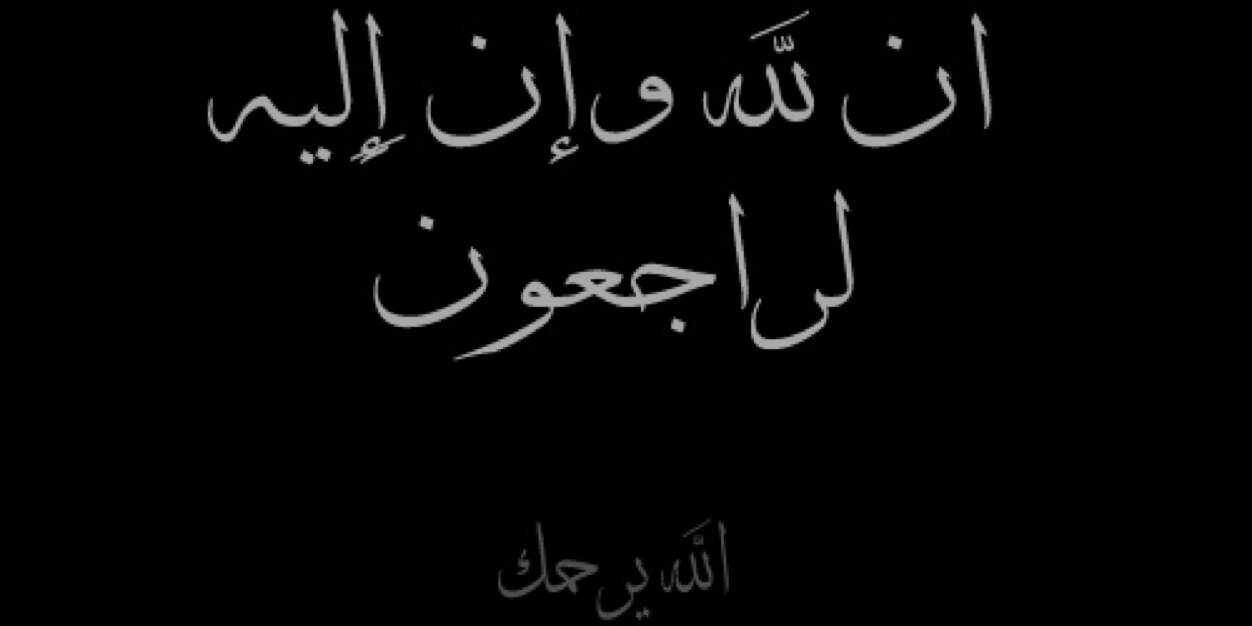 ان لله وإن إليه
لراجعون
الله يرحمك